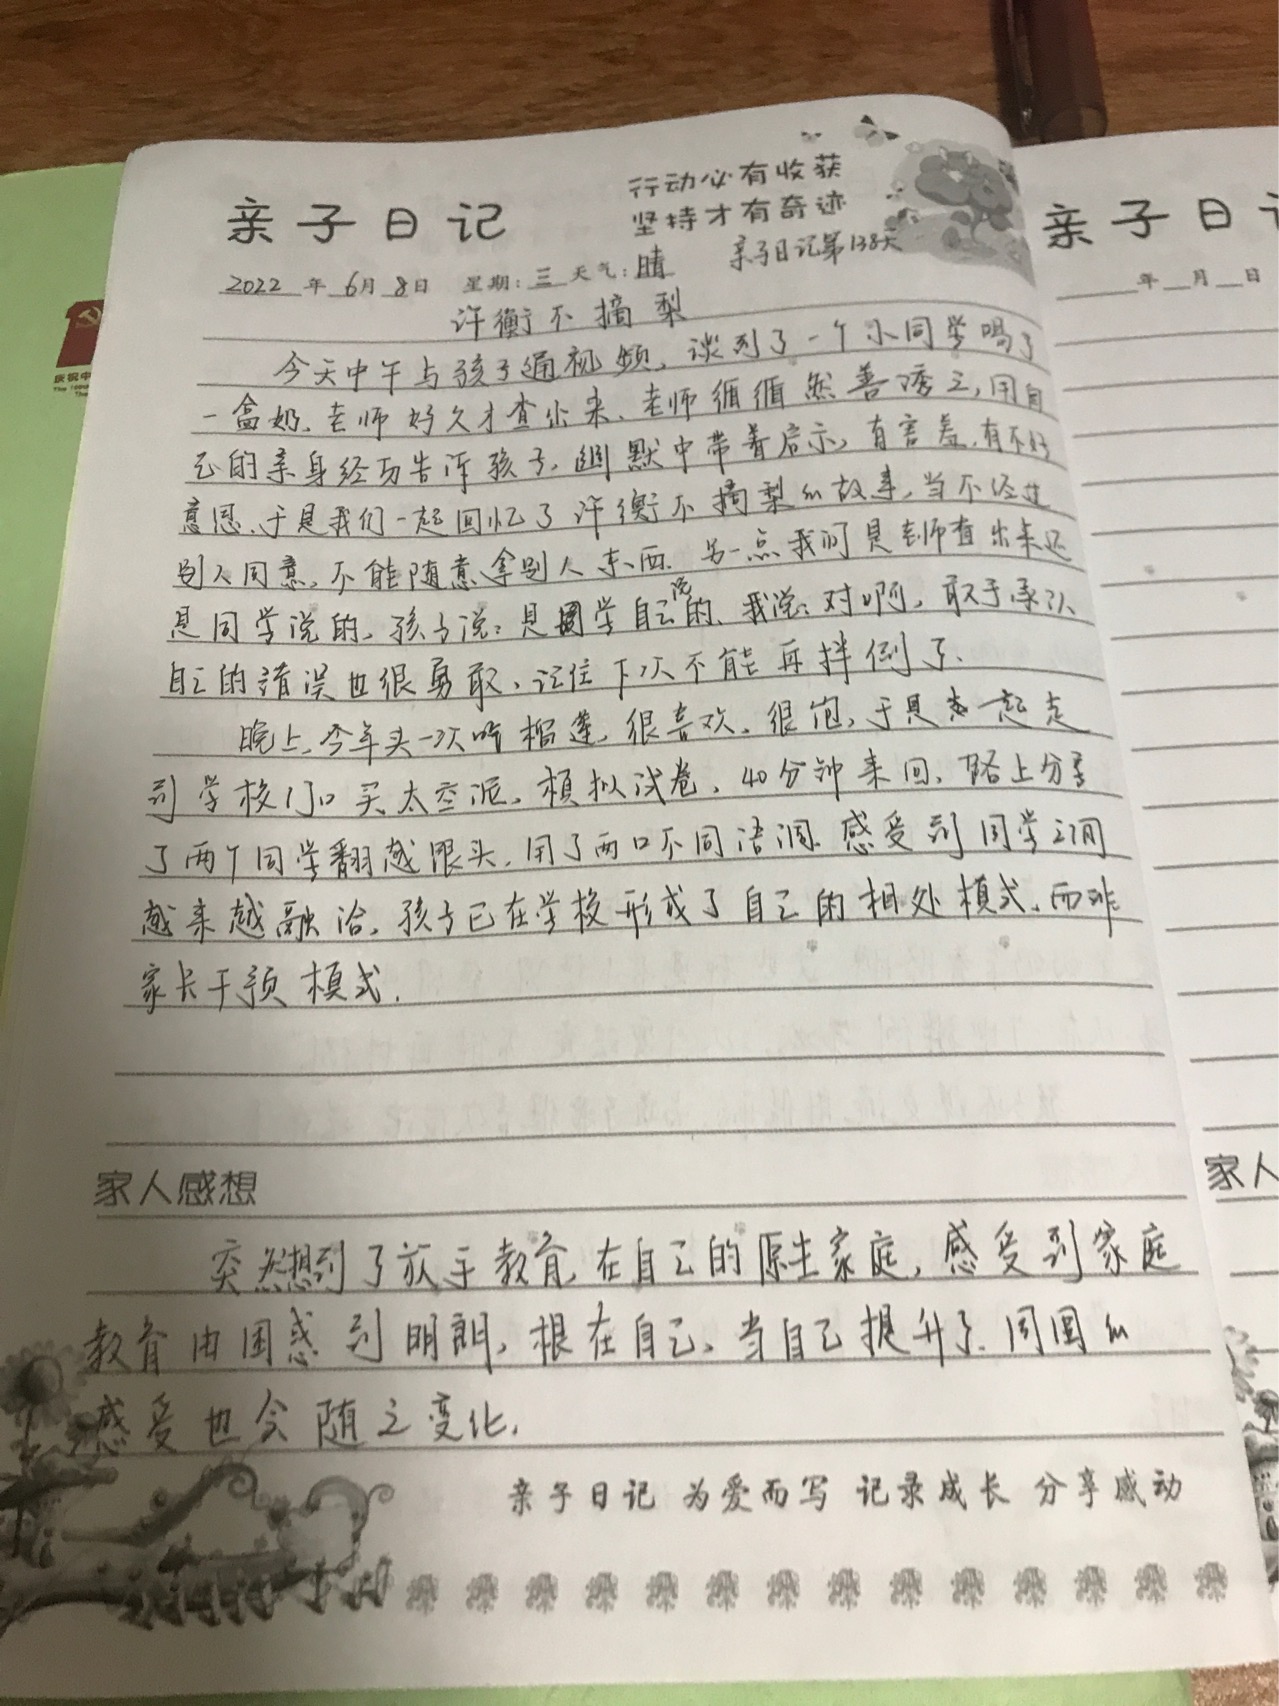 亲子日记
行动必有收获
坚持才有奇迹
亲子日记第138天
2022年6月8日 星期:三 天气:晴
许衡不摘梨
今天中午与孩子通视频,谈到了一个小同学喝了
一盒奶,老师好久才查出来,老师循循然善诱之,用自
己的亲身经历告诉孩子,幽默中带着启示,有害羞,有不好
意思,于是我们一起回忆了许衡不摘梨的故事,当不经过
别人同意,不能随意拿别人东西.另一点我问是老师查出来还
是同学说的,孩子说:是同学自己说的,我说:对啊,敢于承认
自己的错误也很勇敢,记住下次不能再拌倒了.
晚上,今年头一次吃榴莲,很喜欢,很饱,于是一起走
到学校门口买太空泥,模拟试卷,40分钟来回,路上分享
了两个同学翻越跟头,用了两口不同语调.感受到同学之间
越来越融洽,孩子已在学校形成了自己的相处模式,而非
家长干预模式.
家人感想
突然想到了放手教育,在自己的原生家庭,感受到家庭
教育由困惑到明朗,根在自己,当自己提升了.周围的
感受也会随之变化.
亲子日记 为爱而写 记录成长 分享感动
亲子日记
年 月 日
家人
庆祝中